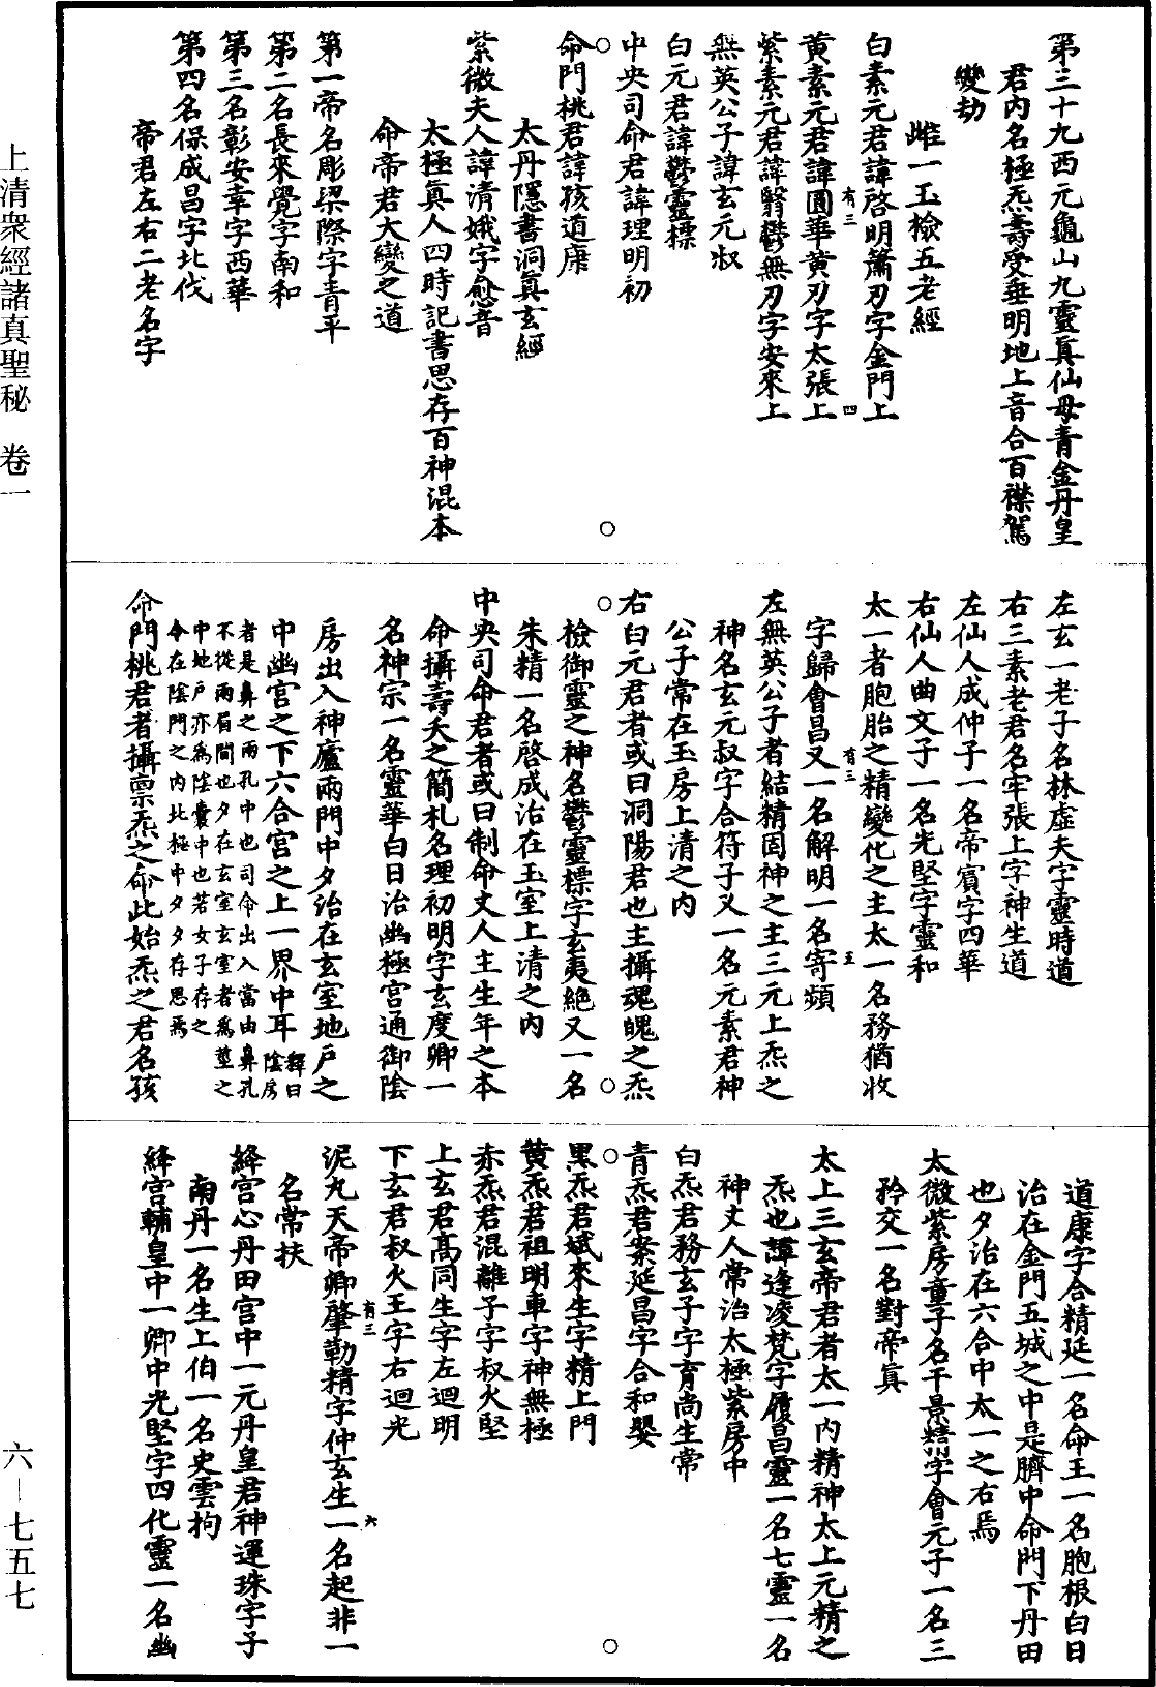 第三十九西元龜山九靈真仙母青金丹皇
君內名極炁壽受垂明地上音合百襟駕
變劫
雌一玉檢五老經
白素元君諱啓明蕭刃字金門上
有三 四
黃素元君諱圓華黃刃字太張上
紫素元君諱翳鬱無刃字安來上
無英公子諱玄元叔
白元君諱鬱靈標
中央司命君諱理明初
命門桃君諱孩道康
太丹隱書洞真玄經
紫微夫人諱清娥字愈音
太極真人四時記書思存百神混本
命帝君大變之道
第一帝名彫梁際字青平
第二名長來覺字南和
第三名彰安幸字西華
第四名保成昌字北伐
帝君左右二老名字
左玄一老子名林虛夫字靈時道
右三素老君名牢張上字神生道
左仙人成仲子一名帝賓字四華
右仙人曲文子一名光堅字靈和
太一者胞胎之精變化之主太一名務猶收
有三 五
字歸會昌又一名解明一名寄頻
左無英公子者結精固神之主三元上炁之
神名玄元叔字合符子又一名元素君神
公子常在玉房上清之內
右白元君者或曰洞陽君也主攝魂魄之炁
檢御靈之神名鬱靈標字玄夷絕又一名
朱精一名啓成治在玉室上清之內
中央司命君者或曰制命丈人主生年之本
命攝壽夭之簡札名理初明字玄度卿一
名神宗一名靈華白日治幽極宮通御陰
房出入神廬兩門中夕治在玄室地戶之
中幽宮之下六合宮之上一界中耳釋曰陰房
者是鼻之兩孔中也司命出入當由鼻孔
不從兩眉間也夕在玄室玄室者為莖之
中地戶亦為陰囊中也若女子存之
令在陰門之內北極中夕存思焉
命門桃君者攝稟炁之命此始炁之君名孩
道康字合精延一名命王一名胞根白日
治在金門五城之中是臍中命門下丹田
也夕治在六合中太一之右焉
太微紫房童子名干景精字會元子一名三
矜交一名對帝真
太上三玄帝君者太一內精神太上元精之
炁也諱逢凌梵字履昌靈一名七靈一名
神丈人常治太極紫房中
白炁君務玄子字育尚生常
青炁君案延昌字合和嬰
黑炁君斌來生字精上門
黃炁君祖明車字神無極
赤炁君混離子字叔火堅
上玄君高同生字左迴明
下玄君叔火王字右迴光
有三 六
泥丸天帝卿肇勒精字仲玄生一名起非一
名常扶
絳宮心丹田宮中一元丹皇君神運珠字子
南丹一名生上伯一名史雲拘
絳宮輔皇中一卿中光堅字四化靈一名幽
上清眾經諸真聖秘 卷一
六－七五七